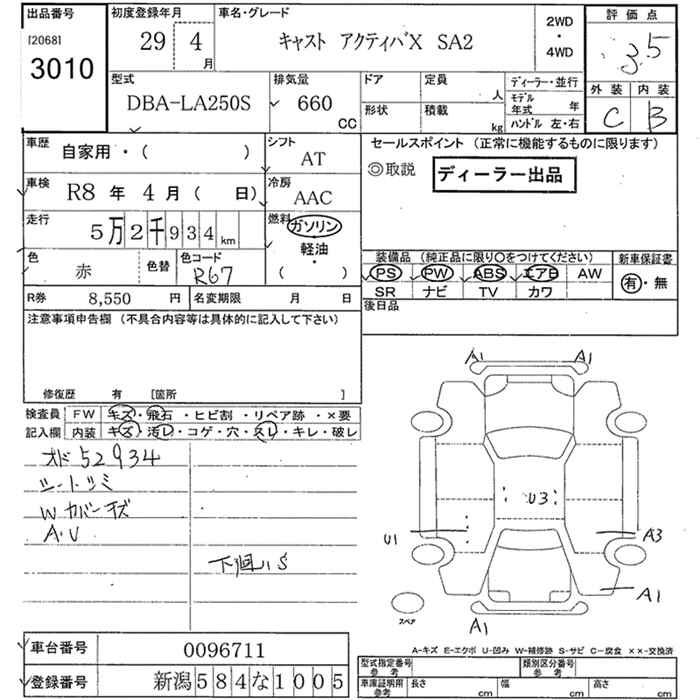 出品番号 [2068] 3010
初度登録年月 29 4月
車名・グレード キャスト アクティバX SA2
2WD・4WD
評価点 3.5
外装 C 内装 B
型式 DBA-LA250S
排気量 660 CC
ドア 定員 人
形状 積載 kg
ディーラー・並行
モデル年式 年
ハンドル 左・右
車歴 自家用・( )
シフト AT
車検 R8 年 4 月 ( 日)
冷房 AAC
走行 5万2千934km
燃料 ガソリン 軽油・( )
色 赤 色替 色コード R67
R券 8,550 円 名変期限 月 日
セールスポイント (正常に機能するものに限ります)
◎取説 ディーラー出品
装備品 (純正品に限り〇をつけてください)
PS PW ABS エアB AW
SR ナビ TV カワ
新車保証書 有・無
後日品
注意事項申告欄 (不具合内容等は具体的に記入して下さい)
修復歴 有 [箇所 ]
検査員記入欄
FW キズ・飛石・ヒビ割・リペア跡・×要
内装 キズ・汚レ・コゲ・穴・スレ・キレ・破レ
オド52934
シートシミ
Wカバーキズ
A.U
下廻りS
A1 A1
U3
U1 A3
A1
A1
スペア
A-キズ E-エクボ U-凹み W-補修跡 S-サビ C-腐食 ××-交換済
車台番号 0096711
登録番号 新潟584な1005
型式指定番号 参考 類別区分番号 参考
車庫証明用 参考 長さ cm 幅 cm 高さ cm